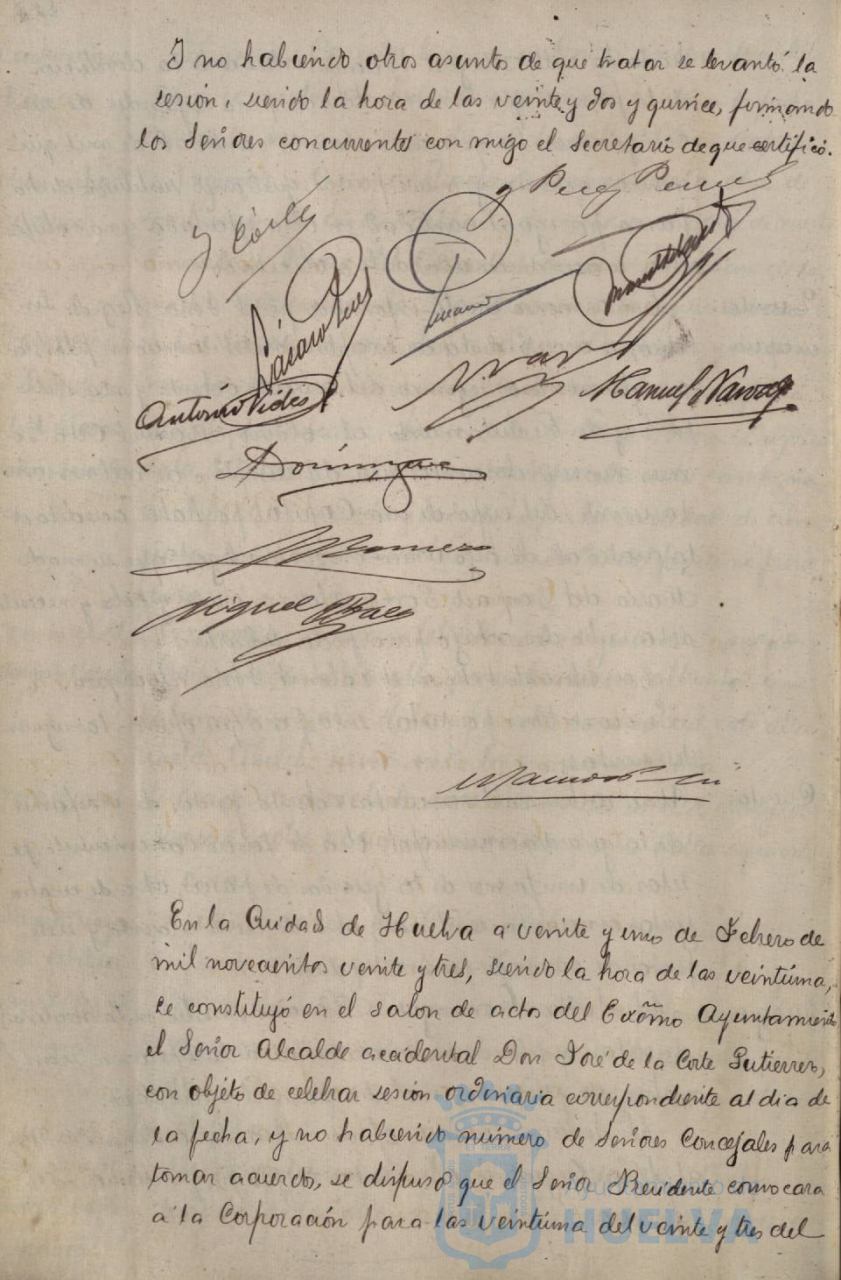 Y no habiendo otros asuntos de que tratar se levantó la
sesión, siendo la hora de las veinte y dos y quince, firmando
los Señores concurrentes conmigo el Secretario de que certifico.
J Corte
Lázaro Pérez
Antonio Vides
Manuel Narvaez
Domínguez
Romero
Miguel Báez
En la Ciudad de Huelva a veinte y uno de Febrero de
mil novecientos veinte y tres, siendo la hora de las veintiuna,
se constituyó en el salon de actos del Excmo Ayuntamiento
el Señor Alcalde accidental Don José de la Corte Gutierrez,
con objeto de celebrar sesión ordinaria correspondiente al dia de
la fecha, y no habiendo número de Señores Concejales para
tomar acuerdo, se dispuso que el Señor Presidente convocara
a la Corporación para las veintiuna del veinte y tres del
HUELVA